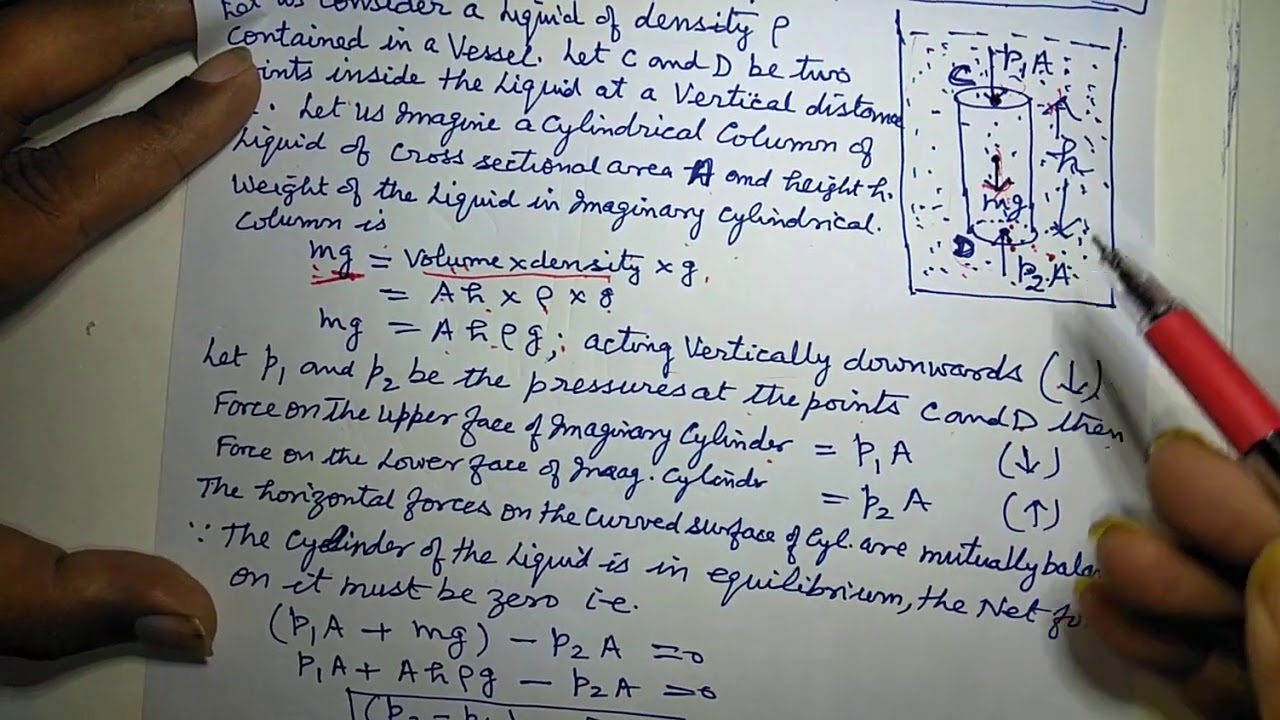 Let us consider a Liquid of density ρ
contained in a Vessel. Let C and D be two
points inside the Liquid at a Vertical distance
Let us Imagine a Cylindrical Column of
Liquid of cross sectional area A and height h.
Weight of the Liquid in Imaginary Cylindrical.
Column is
mg = Volume x density x g.
= A h x ρ x g
mg = A h ρ g ; acting Vertically downwards (↓)
Let P1 and P2 be the pressures at the points C and D then
Force on the upper face of Imaginary Cylinder = P1 A (↓)
Force on the Lower face of Imag. Cylinder = P2 A (↑)
The horizontal forces on the curved surface of Cyl. are mutually
∵ The Cylinder of the Liquid is in equilibrium, the Net
on it must be zero i.e.
(P1 A + mg) - P2 A = 0
P1 A + A h ρ g - P2 A = 0
(P2 - P1)
C
P1 A
h
mg
D
P2 A